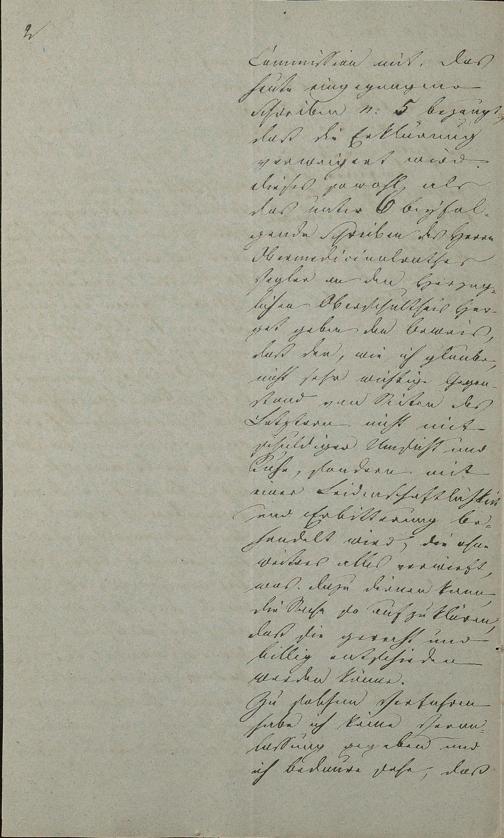 2
Commission mit. Das
heute eingegangene
Schreiben N: 5 besagt,
daß die Erklärung
verweigert wird.
Dieses sowohl, als
das unter 6 beyfol-
gende Schreiben des Herrn
Obermedicinalrathes
an den Herzog-
lichen Oberschultheis Her-
get geben den Beweis,
daß der, wie ich glaube,
nicht sehr wichtige Gegen-
stand von Seiten des
Letztern nicht mit
schuldiger Umsicht und
Ruhe, sondern mit
einer Leidenschaftlichkeit
und Erbitterung be-
handelt wird, die ohne
weiteres alles verwirft,
was dazu dienen kann
die Sache so aufzuklären,
daß sie gerecht und
billig entschieden
werden könne.
Zu solchem Verfahren
habe ich keine Veran-
lassung gegeben und
ich bedaure sehr, daß